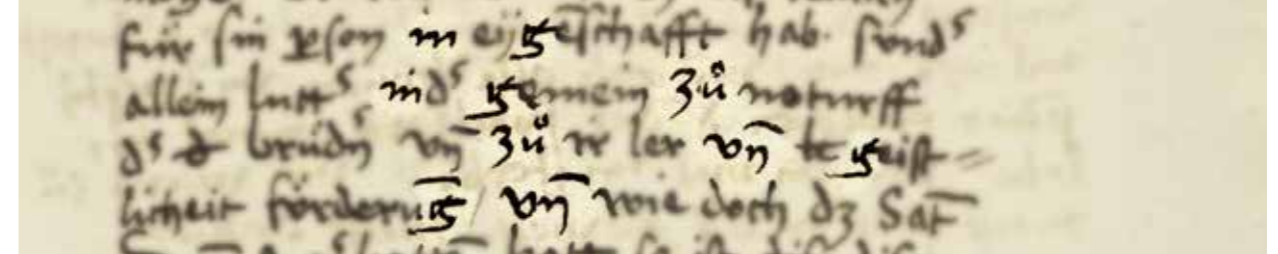 für sin ꝑson in eygēschafft hab. sund᾽
allein lutt᾽ ind᾽ gemein zů noturff
d᾽ brüd᾽ vn̄ zů ir ler vn̄ geist=
licheit förderūg / vn̄ wie doch dz Sat̄